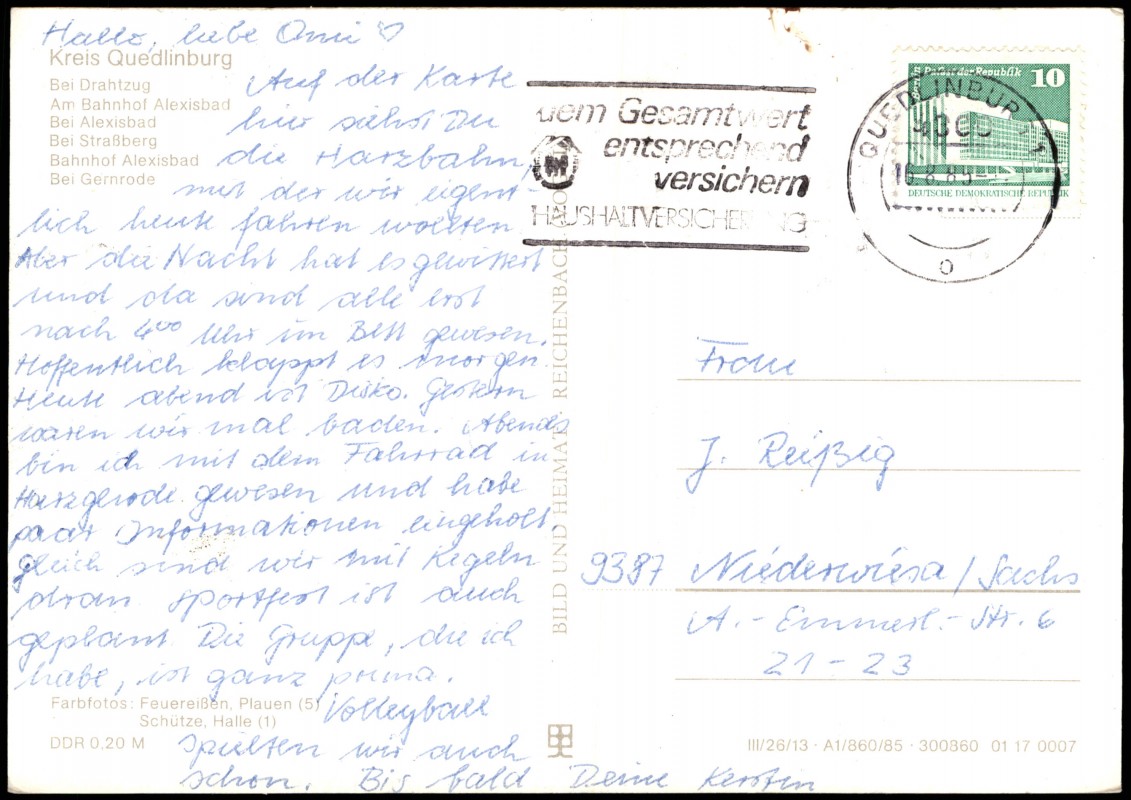 Hallo, liebe Omi ♡
Kreis Quedlinburg
Bei Drahtzug
Am Bahnhof Alexisbad
Bei Alexisbad
Bei Straßberg
Bahnhof Alexisbad
Bei Gernrode
Auf der Karte
hier siehst Du
die Harzbahn,
mit der wir eigent-
lich heute fahren wollten.
Aber die Nacht hat es gewittert
und da sind alle erst
nach 4⁰⁰ Uhr im Bett gewesen.
Hoffentlich klappt es morgen.
Heute abend ist Disko. Gestern
waren wir mal baden. Abends
bin ich mit dem Fahrrad in
Harzgerode gewesen und habe
paar Informationen eingeholt.
gleich sind wir mit Kegeln
dran. Sportfest ist auch
geplant. Die Gruppe, die ich
habe, ist ganz prima.
Volleyball
spielten wir auch
schon. Bis bald Deine Kerstin
Farbfotos: Feuereißen, Plauen (5)
Schütze, Halle (1)
DDR 0,20 M
BILD UND HEIMAT REICHENBACH
dem Gesamtwert
entsprechend
versichern
HAUSHALTVERSICHERUNG
QUEDLINBURG 1
Palast der Republik 10
DEUTSCHE DEMOKRATISCHE REPUBLIK
Frau
J. Reißig
9387 Niederwiesa/Sachs
A.-Emmerl.-Str. 6
21-23
III/26/13 · A1/860/85 · 300860 01 17 0007